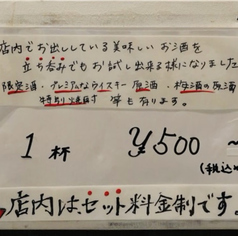 店内でお出ししている美味しいお酒を
立ち呑みでもお試し出来る様になりました
限定酒・プレミアムなウイスキー原酒・梅酒の原酒
特別焼酎 等も有ります。
1杯 ¥500 ~
(税込
店内は、セット料金制です。